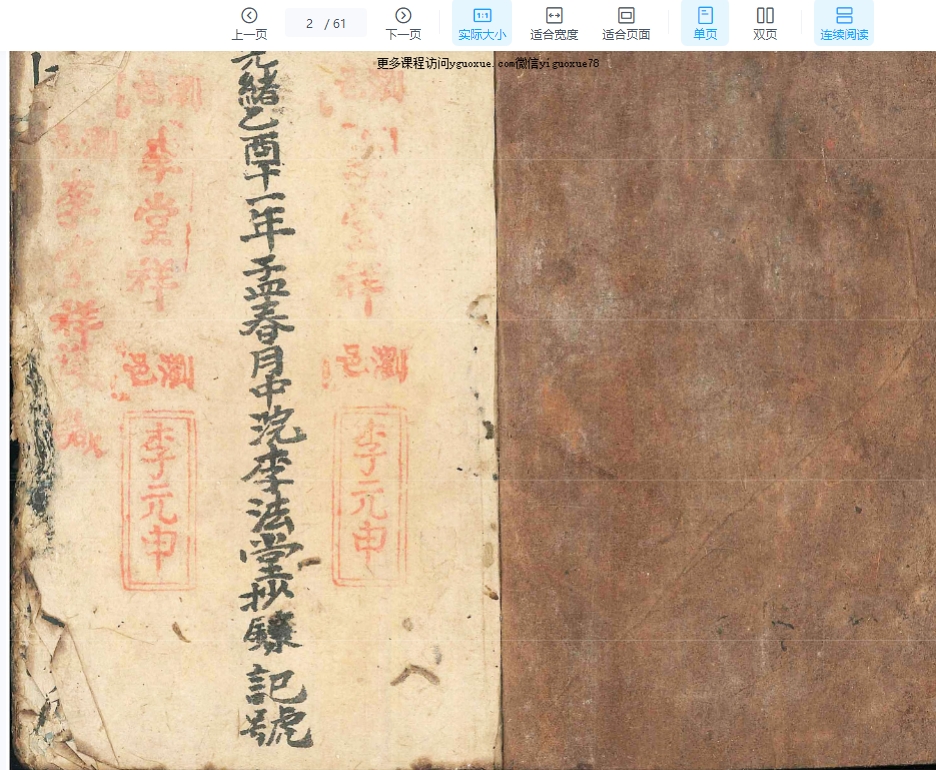 上一页
2 / 61
下一页
实际大小
适合宽度
适合页面
单页
双页
连续阅读
更多课程访问yguoxue.com微信yiguoxue78
光緒乙酉十一年孟春月中浣李法堂抄錄 記號
瀏邑
李元申
李堂祥
瀏邑
李元申
祥